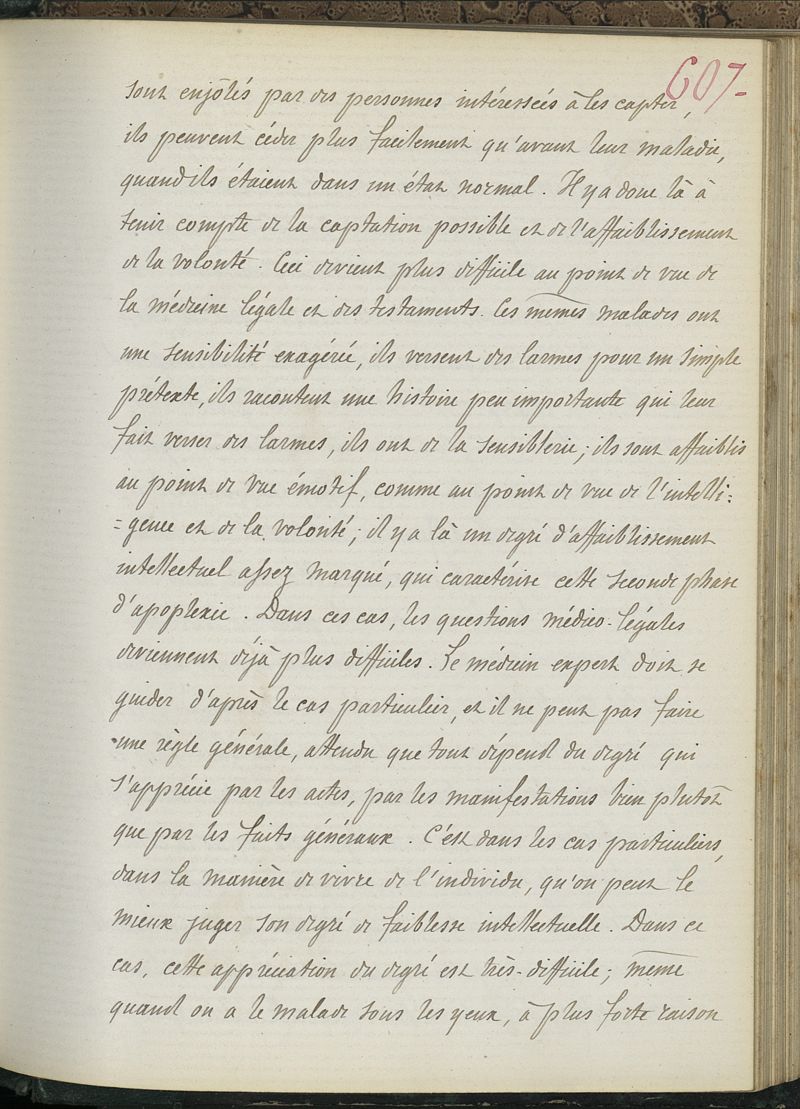 607-
sont enjôlés par des personnes intéressées à les capter,
ils peuvent céder plus facilement qu'avant leur maladie,
quand ils étaient dans un état normal. Il y a donc là à
tenir compte de la captation possible et de l'affaiblissement
de la volonté. Ceci devient plus difficile au point de vue de
la médecine légale et des testaments. Ces mêmes malades ont
une sensibilité exagérée, ils versent des larmes pour un simple
prétexte, ils racontent une histoire peu importante qui leur
fait verser des larmes, ils ont de la sensiblerie; ils sont affaiblis
au point de vue émotif, comme au point de vue de l'intelli=
=gence et de la volonté; il y a là un degré d'affaiblissement
intellectuel assez marqué, qui caractérise cette seconde phase
d'apoplexie. Dans ces cas, les questions médico-légales
deviennent déjà plus difficiles. Le médecin expert doit se
guider d'après le cas particulier, et il ne peut pas faire
une règle générale, attendu que tout dépend du degré qui
s'apprécie par les actes, par les manifestations bien plutôt
que par les faits généraux. C'est dans les cas particuliers,
dans la manière de vivre de l'individu, qu'on peut le
mieux juger son degré de faiblesse intellectuelle. Dans ce
cas, cette appréciation du degré est très-difficile; même
quand on a le malade sous les yeux, à plus forte raison